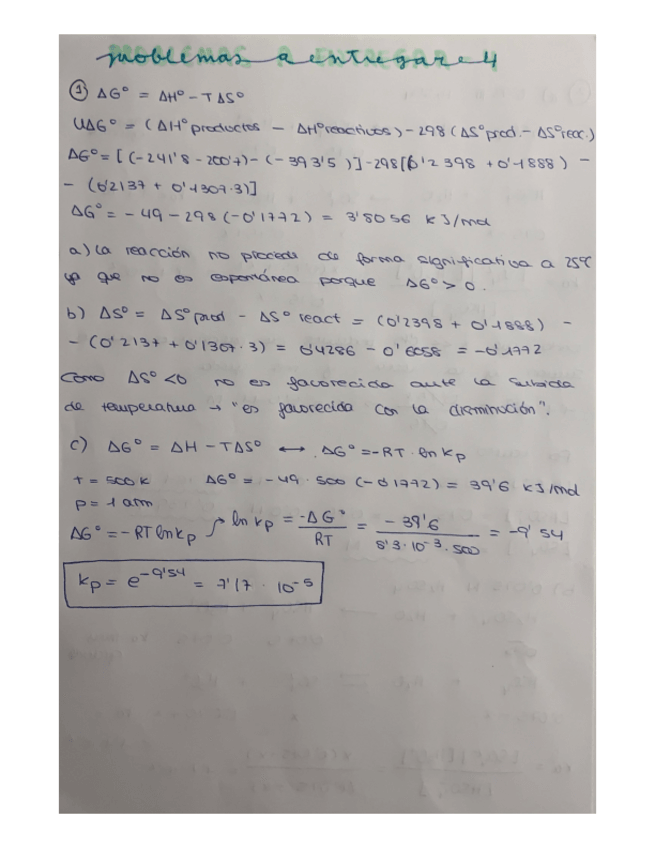 problemas a entregar 4
① ΔG° = ΔH° - TΔS°
UΔG° = (ΔH° productos - ΔH° reactivos) - 298 (ΔS° prod. - ΔS° reac.)
ΔG° = [(-241'8 - 200'7) - (-393'5)] - 298[(0'2398 + 0'1888) -
- (0'2137 + 0'1307·3)]
ΔG° = -49 - 298 (-0'1772) = 3'8056 kJ/mol
a) La reacción no procede de forma significativa a 25°C
ya que no es espontánea porque ΔG° > 0.
b) ΔS° = ΔS° prod - ΔS° react = (0'2398 + 0'1888) -
- (0'2137 + 0'1307·3) = 0'4286 - 0'6058 = -0'1772
Como ΔS° < 0 no es favorecida ante la subida
de temperatura → "es favorecida con la disminución".
c) ΔG° = ΔH - TΔS° ⟷ ΔG° = -RT · ln Kp
T = 500K ΔG° = -49 · 500 (-0'1772) = 39'6 kJ/mol
p = 1 atm
ΔG° = -RT ln Kp ln Kp = -ΔG° / RT = -39'6 / 8'3·10⁻³·500 = -9'54
Kp = e^-9'54 = 7'17 · 10⁻⁵